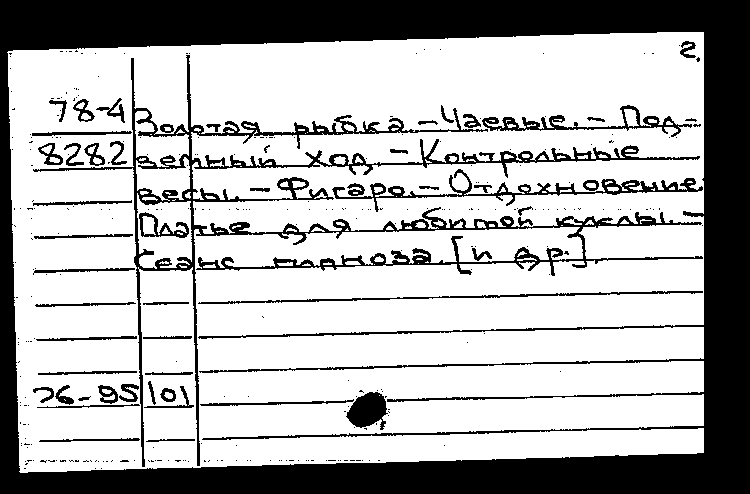 2.
78-4 Золотая рыбка. - Чаевые. - Под-
8282 ветный ход. - Контрольные
весы. - Фигаро. - Отдохновение.
Платье для любимой куклы. -
Сеанс гипноза. [и др.].
76-95 101